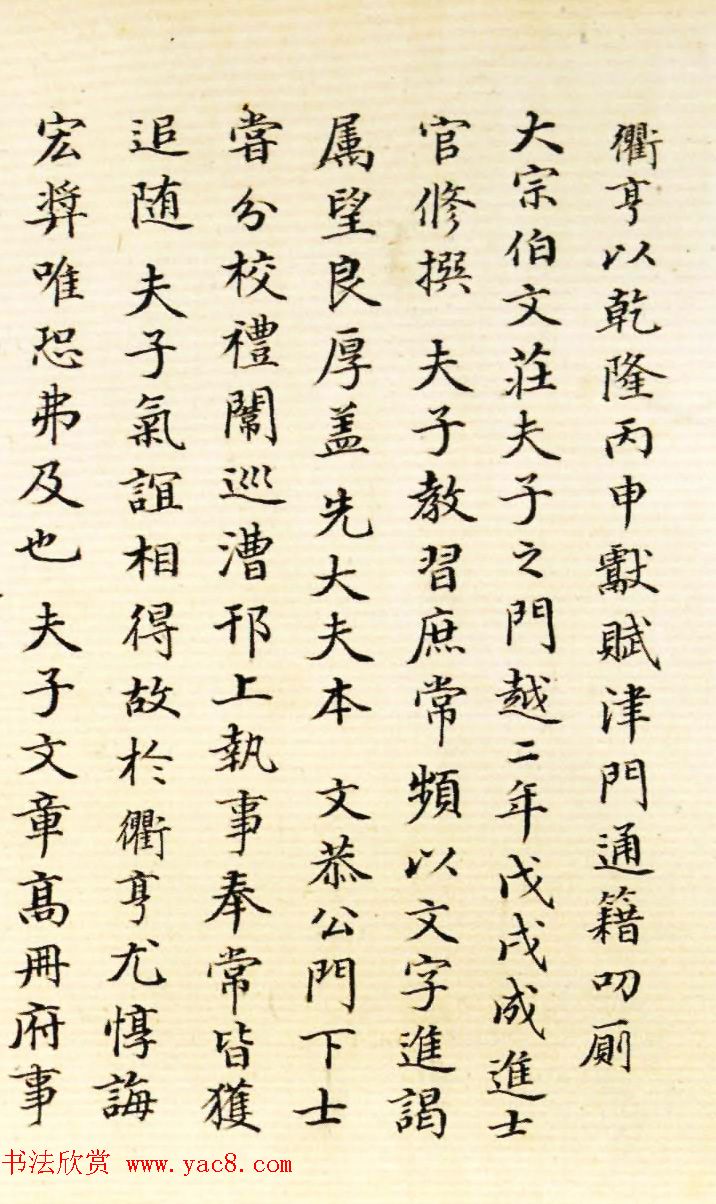 衢亨以乾隆丙申獻賦津門通籍叨厠
大宗伯文莊夫子之門越二年戊戌成進士
官修撰 夫子教習庶常頻以文字進謁
属望良厚盖 先大夫本 文恭公門下士
嘗分校禮闈巡漕邗上執事奉常皆獲
追随 夫子氣誼相得故於衢亨尤惇誨
宏奨唯恐弗及也 夫子文章髙冊府事
书法欣赏 www.yac8.com